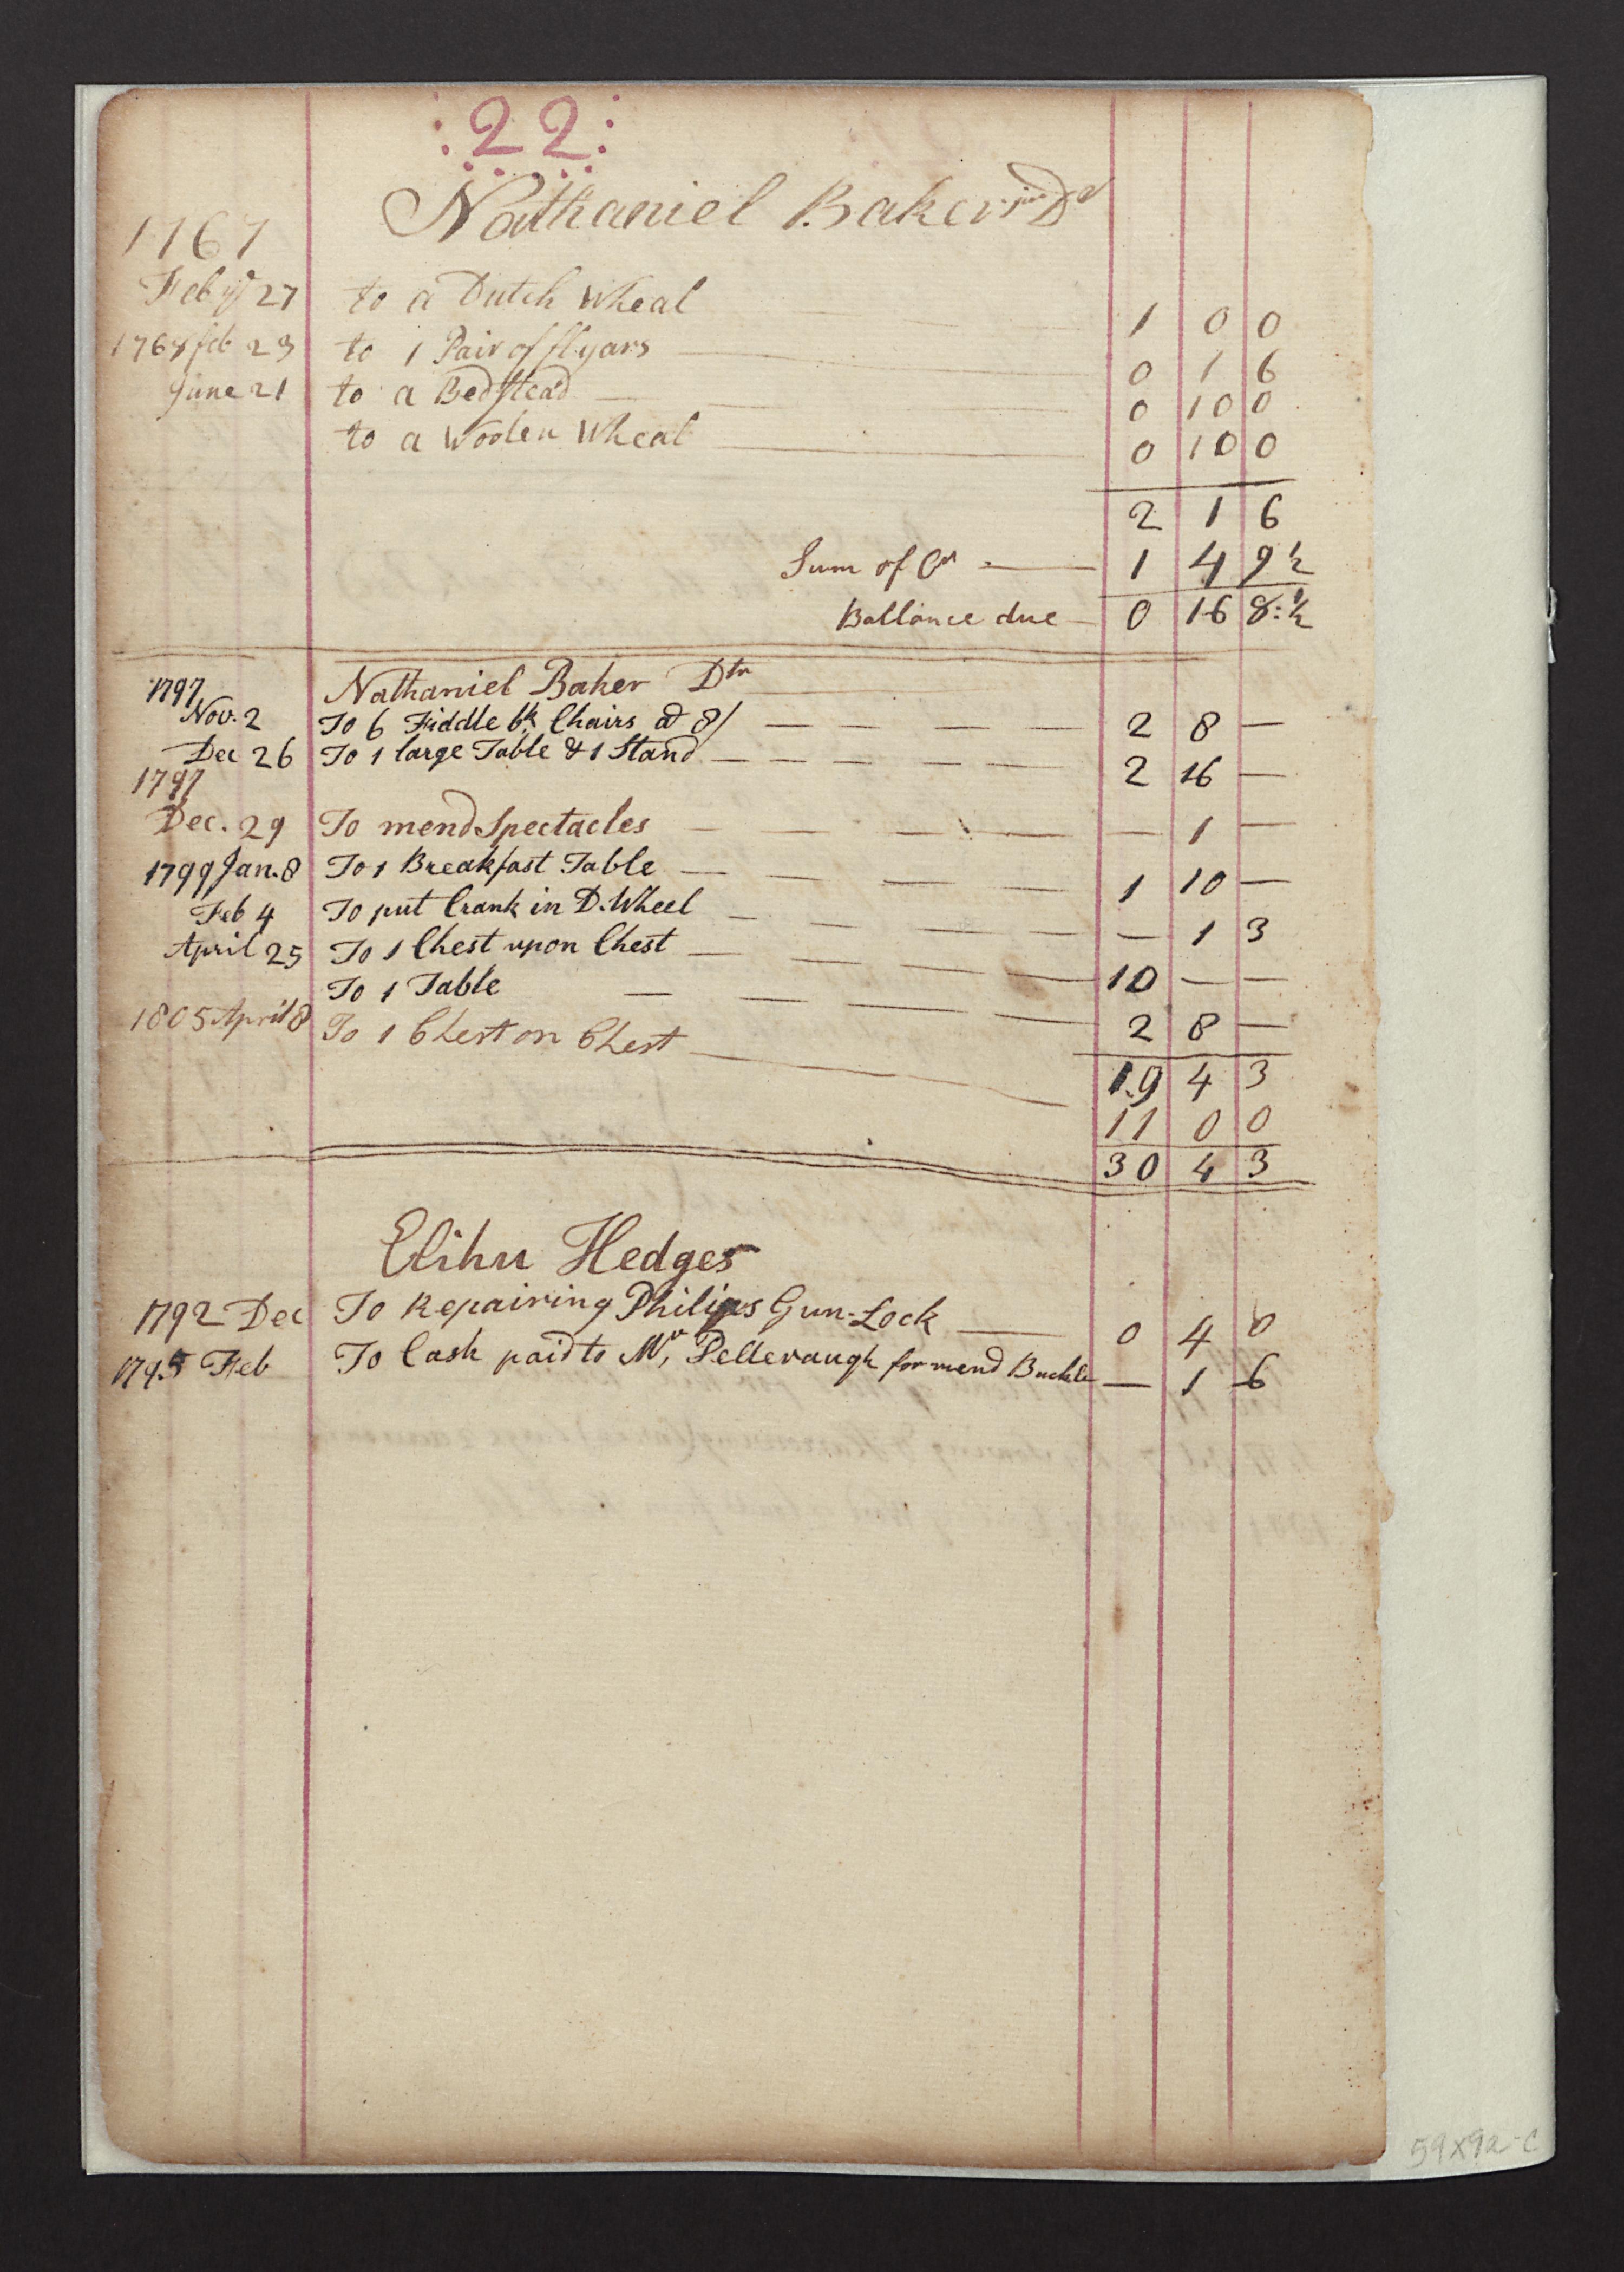 :22:
Nathaniel Baker jun Dr
1767
Feby 27 to a Dutch Wheal 1 0 0
1768 feb 23 to 1 Pair of flyars 0 1 6
June 21 to a Bedstead 0 10 0
to a Woolen Wheal 0 10 0
2 1 6
Sum of Cr 1 4 9 1/2
Ballance due 0 16 8:1/2
1797 Nathaniel Baker Dtr
Nov. 2 To 6 Fiddle bk Chairs @ 8/ — — — — 2 8 —
Dec 26 To 1 large Table & 1 Stand — — — — — 2 16 —
1797
Dec. 29 To mend Spectacles — — — — — 1 —
1799 Jan. 8 To 1 Breakfast Table — — — — 1 10 —
Feb 4 To put Crank in D. Wheel — — — — — 1 3
April 25 To 1 Chest upon Chest — — — — 10 — —
To 1 Table — — — — 2 8 —
1805 April 8 To 1 Chest on Chest
19 4 3
11 0 0
30 4 3
Elihu Hedges
1792 Dec To Repairing Philips Gun-Lock — 0 4 0
1795 Feb To Cash paid to Mr, Pellevaugh for mend Buckle — 1 6
59x9a-c